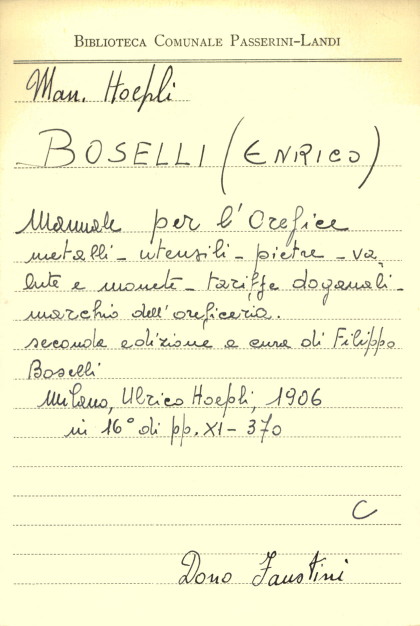 BIBLIOTECA COMUNALE PASSERINI-LANDI
Man. Hoepli
BOSELLI (ENRICO)
Manuale per l'Orefice
metalli - utensili - pietre - va
lute e monete - tariffe doganali -
marchio dell'oreficeria.
seconda edizione a cura di Filippo
Boselli
Milano, Ulrico Hoepli, 1906
in 16° di pp. XI - 370
C
Dono Faustini